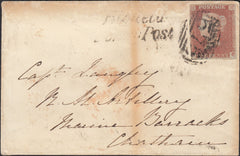 Post
Capt. Langley
R. M. Artillery
Marine Barracks
Chatham